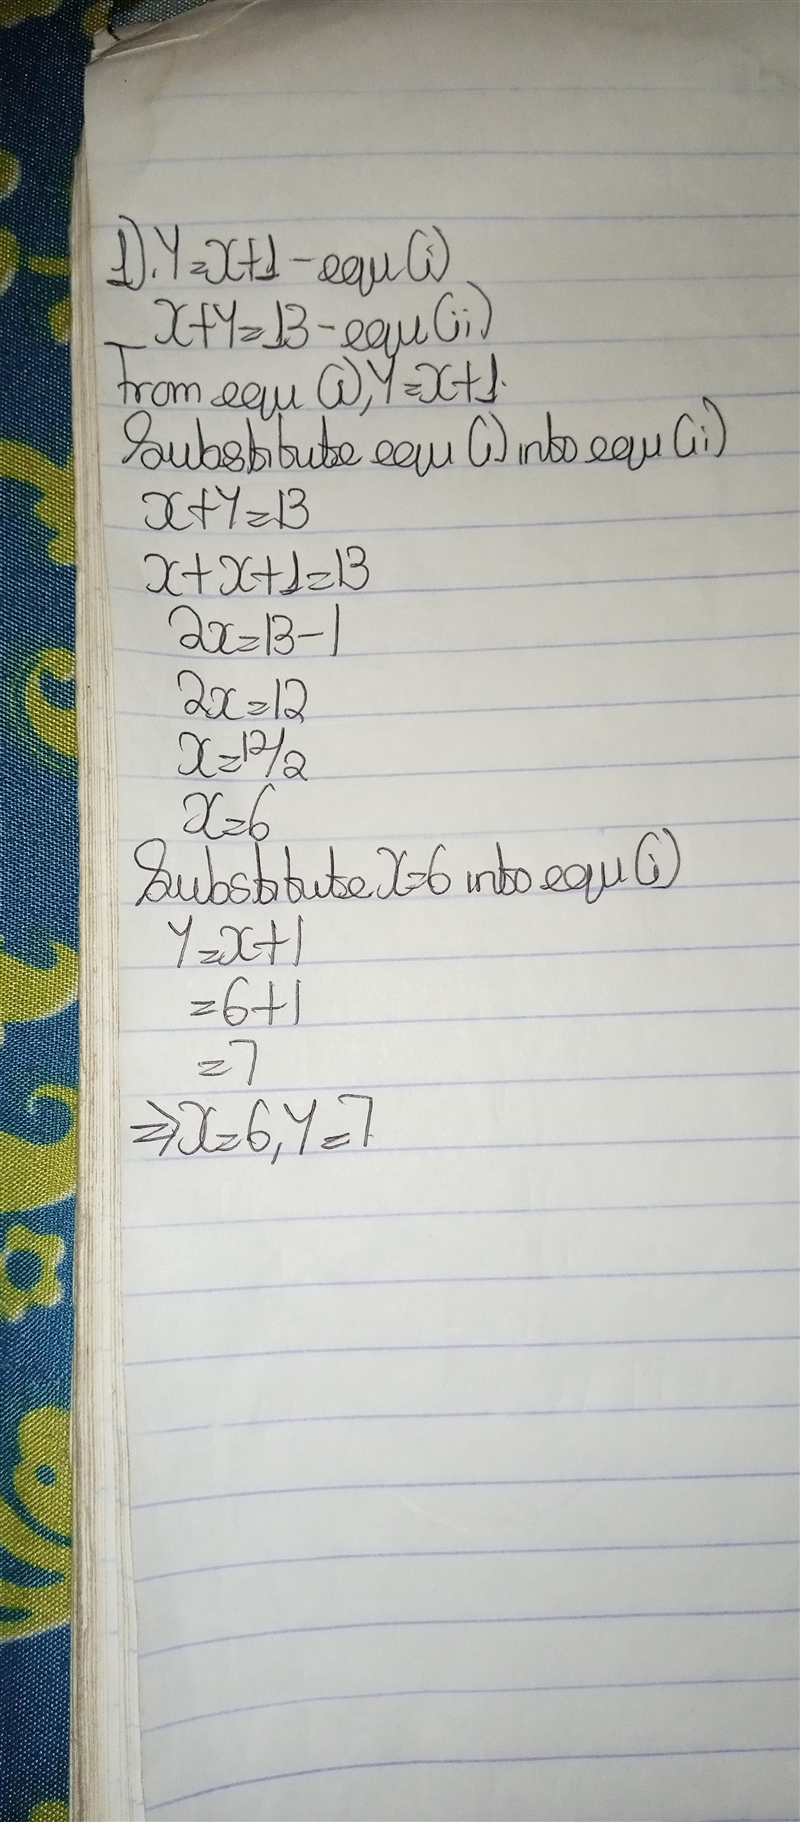 1). Y=x+1 - equ(i)
x+Y=13 - equ(ii)
From equ (i), Y=x+1.
Substitute equ (i) into equ (ii)
x+Y=13
x+x+1=13
2x=13-1
2x=12
x=12/2
x=6
Substitute x=6 into equ (i)
Y=x+1
=6+1
=7
⇒x=6, Y=7